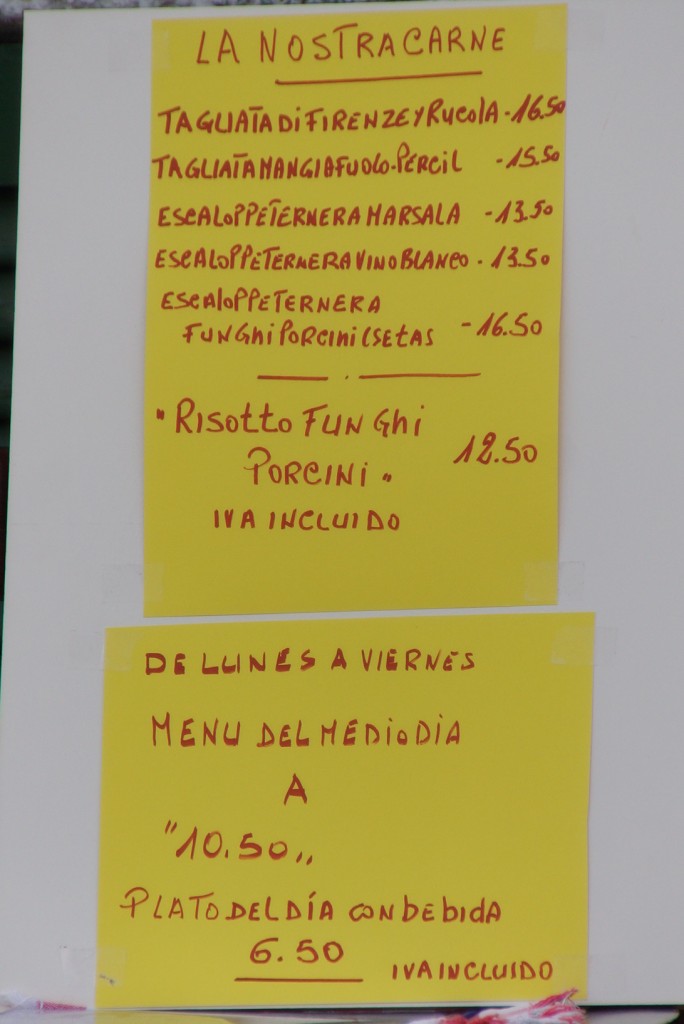 LA NOSTRA CARNE
TAGLIATA DI FIRENZE Y RUCOLA - 16.50
TAGLIATA MANGIAFUOCO - PERCIL - 15.50
ESCALOPPE TERNERA MARSALA - 13.50
ESCALOPPE TERNERA VINO BLANCO - 13.50
ESCALOPPE TERNERA
FUNGHI PORCINI (SETAS - 16.50
"RISOTTO FUNGHI
PORCINI" 12.50
IVA INCLUIDO
DE LUNES A VIERNES
MENU DEL MEDIODIA
A
"10.50"
PLATO DEL DÍA CON BEBIDA
6.50 IVA INCLUIDO